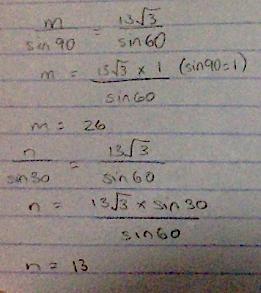 m/sin 90 = 13√3/sin60
m = 13√3 × 1 (sin90=1)/sin60
m = 26
n/sin30 = 13√3/sin60
n = 13√3 × sin 30/sin60
n = 13